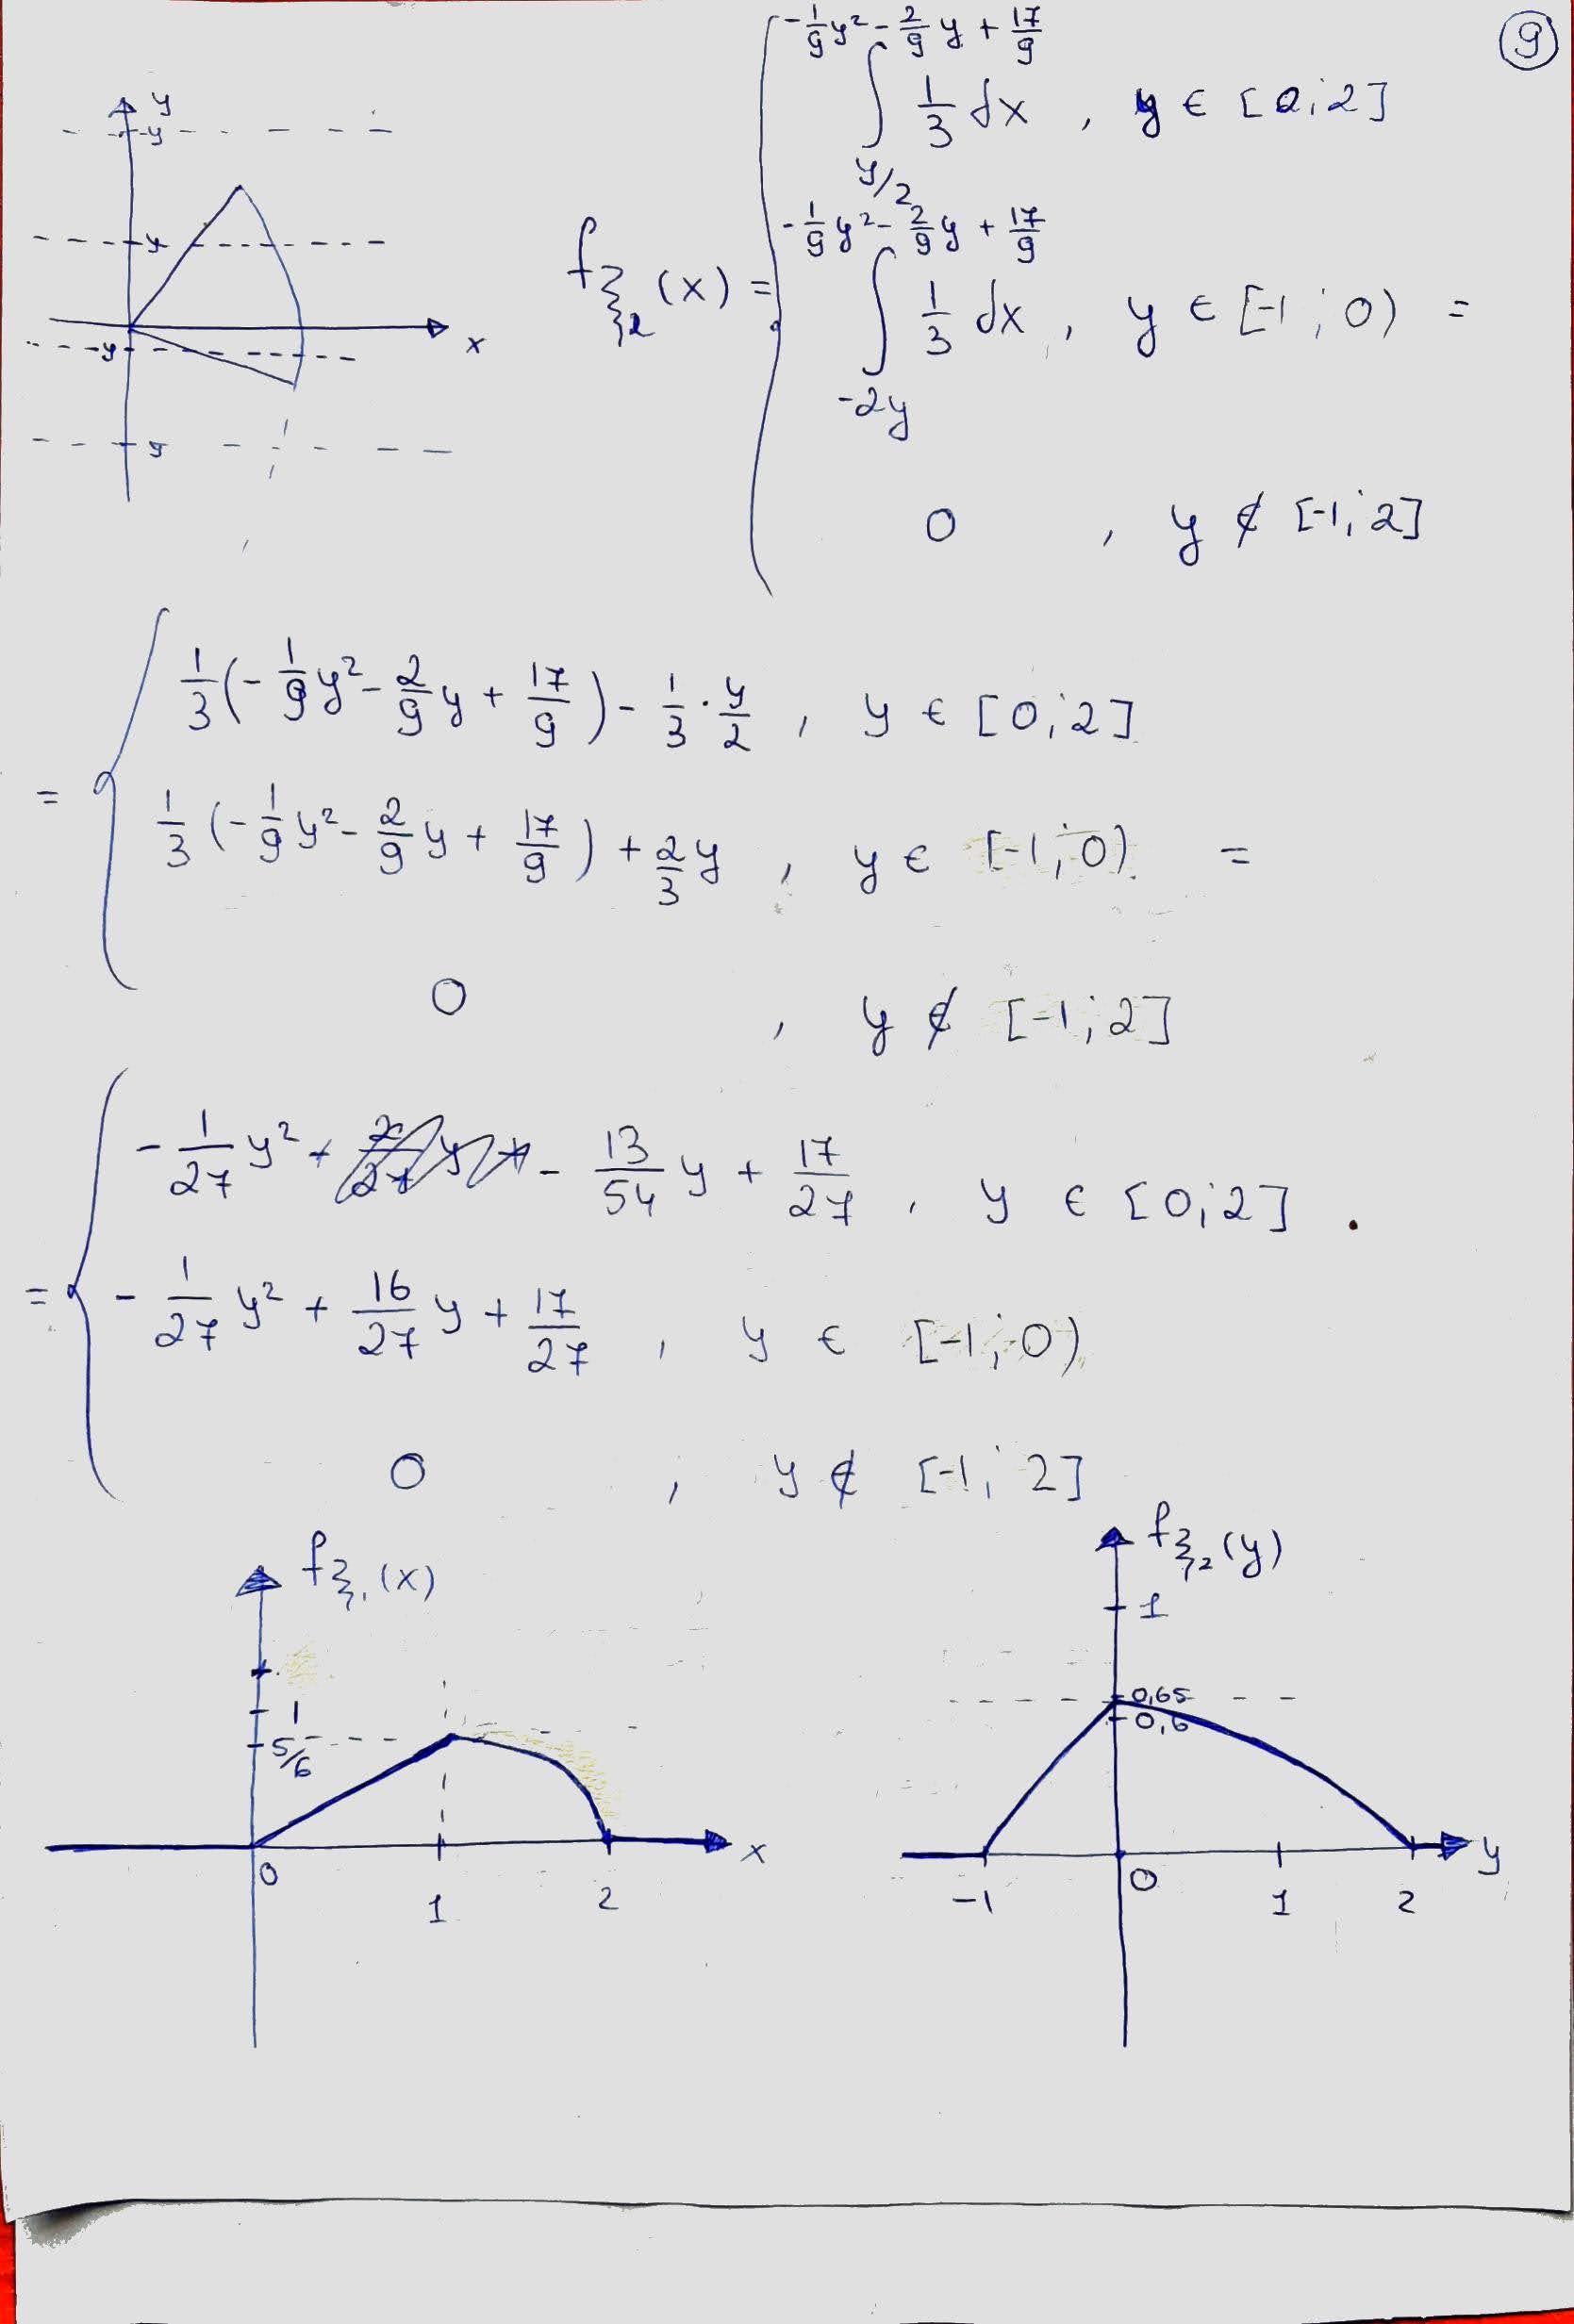 9
y
y
y
y
y
x
f_{ξ_2}(x) = { ∫_{y/2}^{-1/9 y² - 2/9 y + 17/9} 1/3 dx , y ∈ [0; 2]
∫_{-2y}^{-1/9 y² - 2/9 y + 17/9} 1/3 dx , y ∈ [-1; 0) =
0 , y ∉ [-1; 2]
= { 1/3 (-1/9 y² - 2/9 y + 17/9) - 1/3 · y/2 , y ∈ [0; 2]
1/3 (-1/9 y² - 2/9 y + 17/9) + 2/3 y , y ∈ [-1; 0) =
0 , y ∉ [-1; 2]
= { -1/27 y² + - 13/54 y + 17/27 , y ∈ [0; 2] .
-1/27 y² + 16/27 y + 17/27 , y ∈ [-1; 0)
0 , y ∉ [-1; 2]
f_{ξ_1}(x)
1
5/6
0
1
2
x
f_{ξ_2}(y)
1
0,65
0,6
-1
0
1
2
y